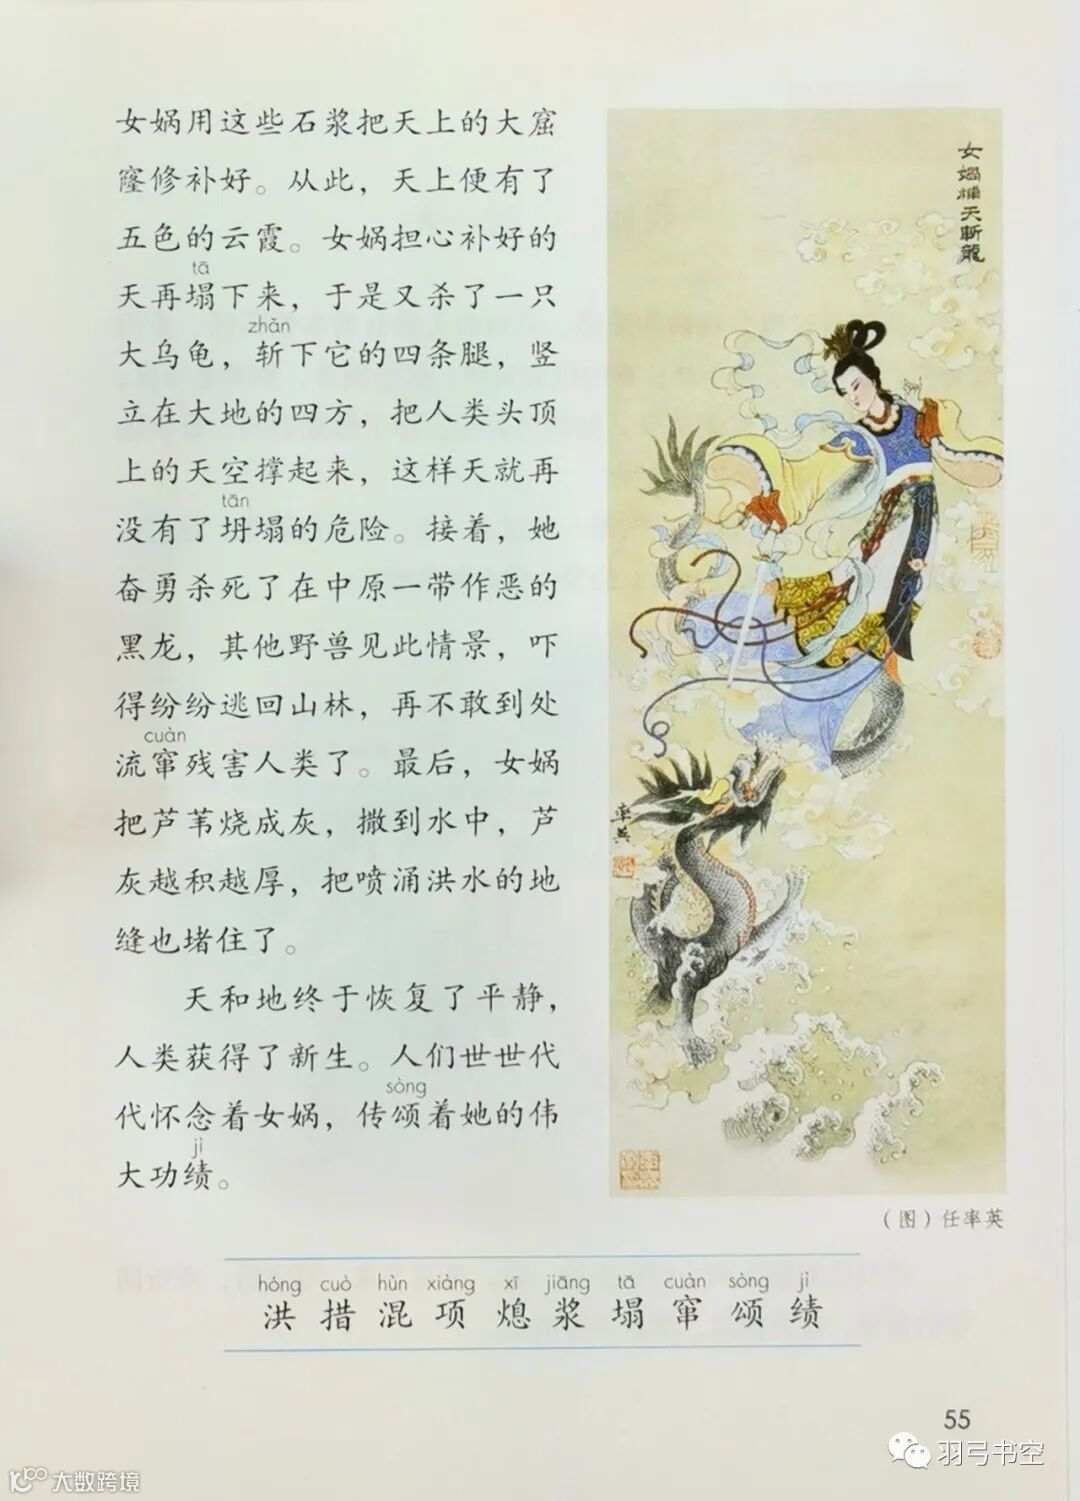 女娲用这些石浆把天上的大窟
窿修补好。从此，天上便有了
五色的云霞。女娲担心补好的
tā
天再塌下来，于是又杀了一只
zhǎn
大乌龟，斩下它的四条腿，竖
立在大地的四方，把人类头顶
上的天空撑起来，这样天就再
tān
没有了坍塌的危险。接着，她
奋勇杀死了在中原一带作恶的
黑龙，其他野兽见此情景，吓
得纷纷逃回山林，再不敢到处
cuàn
流窜残害人类了。最后，女娲
把芦苇烧成灰，撒到水中，芦
灰越积越厚，把喷涌洪水的地
缝也堵住了。
天和地终于恢复了平静，
人类获得了新生。人们世世代
sòng
代怀念着女娲，传颂着她的伟
jì
大功绩。
女媧補天斬龍
率英
（图）任率英
hóng cuò hùn xiàng xī jiāng tā cuàn sòng jì
洪 措 混 项 熄 浆 塌 窜 颂 绩
55
羽弓书空
大数跨境